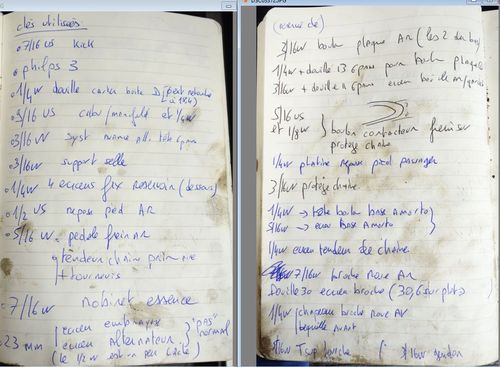 clés utilisées
7/16 US Kick
philps 3
1/4 W douille carter boite
5/16 US carbu/manifold et 1/4W
3/16W syst avance All. tête 6 pans
3/16W support selle
1/4W 4 ecrous fix reservoir (dessous)
1/2 US repose pied AR
5/16 W pedale frein AR
tendeur chaine primaire
+ tournevis
7/16W Robinet essence
23 mm ecrou embrayage
ecrou Alternateur } "pas" normal
(le 1/2 W est un peu lache)
3/16W boulon plaque AR (les 2 du bas)
1/4W + douille 13 6 pans pour boulon plaque
3/16W + douille 11 6 pans ecrou
5/16 US
et 1/4W } boulon contacteur frein sur
protège chaine
1/4W platine repose pied passager
3/16W protège chaine
1/4W → tête boulon base Amorto
5/16W → ecrou Base Amorto
1/4W ecrou tendeur de chaine
7/16W broche roue AR
Douille 30 ecrou broche (30,6 sur plats)
1/4W chapeau broche roue AV
béquille Avant
5/16W broche